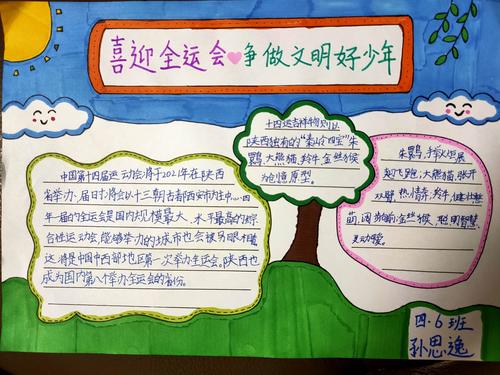 喜迎全运会争做文明好少年
中国第十四届运动会将于2021年在陕西
省举办,届时将会以十三朝古都西安市为主中心.四
年一届的全运会是国内规模最大、水平最高的综
合性运动会,能够举办的城市也会被另眼相看
这将是中国中西部地区第一次举办全运会。陕西也
成为国内第八个举办全运会的省份。
十四运吉祥物则以
陕西独有的"秦岭四宝"朱
鹮、大熊猫、羚牛、金丝猴
为创意原型。
朱鹮,手持火炬展
翅飞跑,大熊猫,张开
双臂,热情奔羚牛,健壮憨
萌,阔步向前;金丝猴,聪明智慧、
灵动可爱。
四.6班
孙思逸